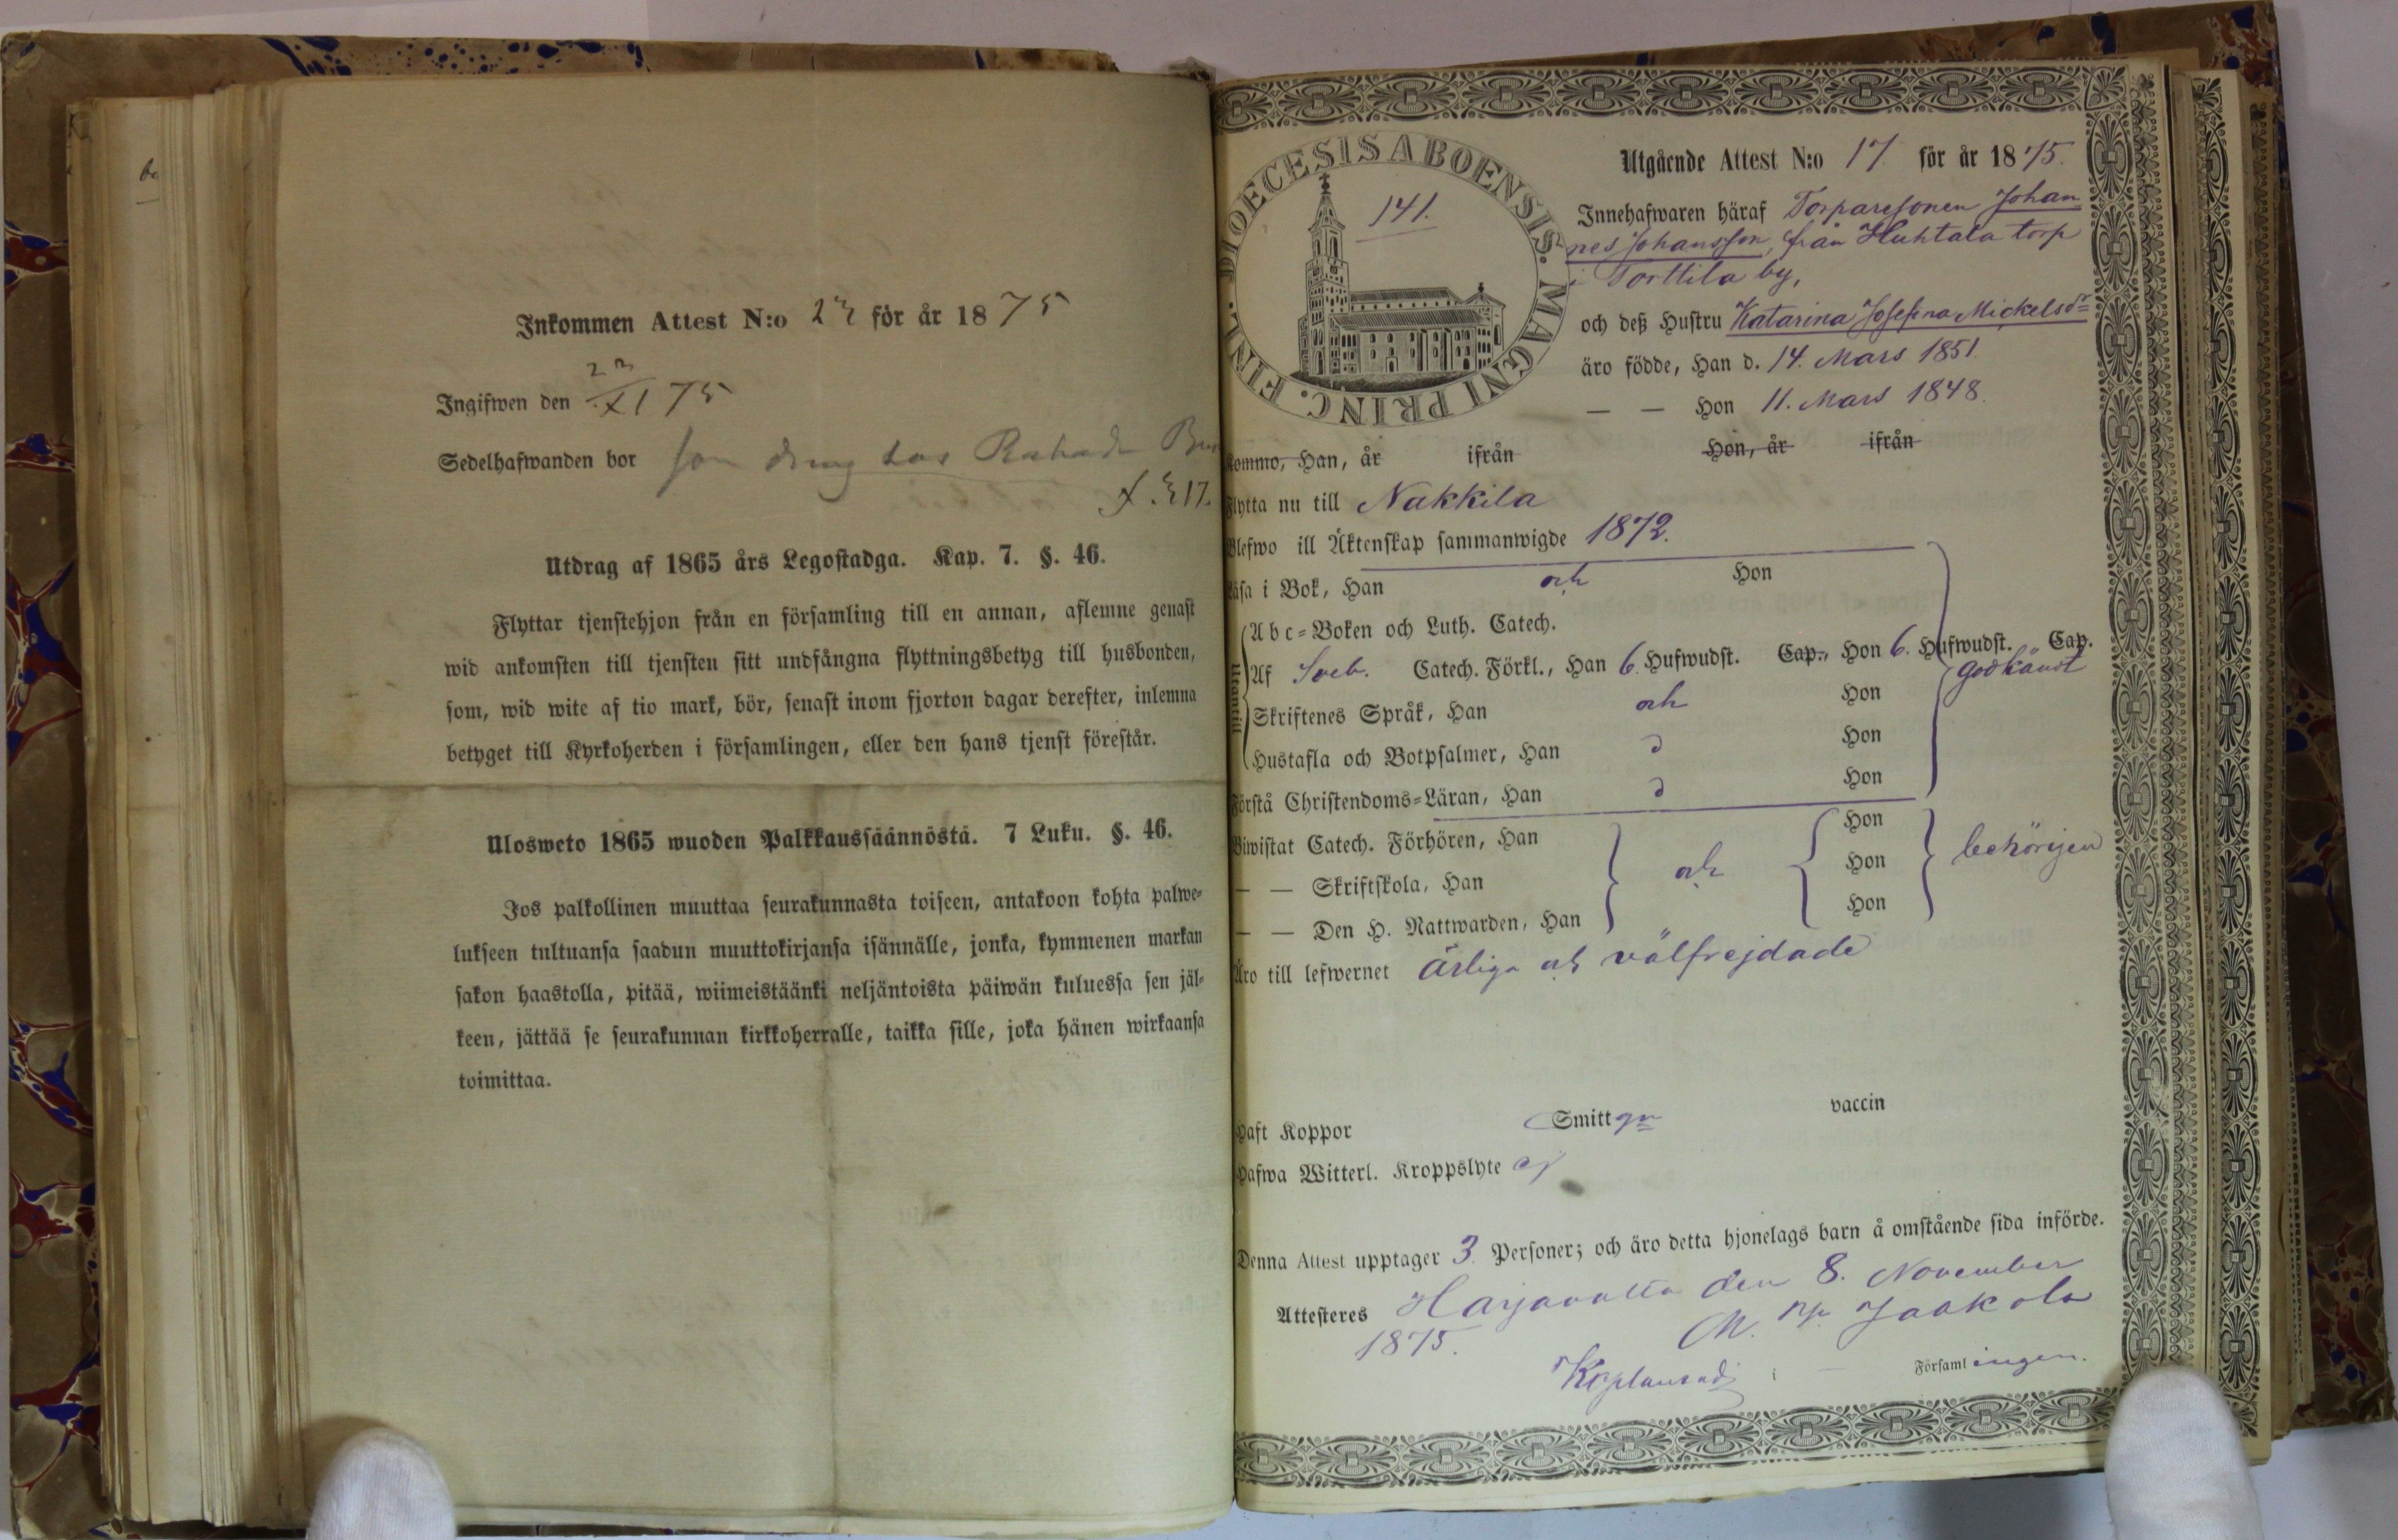 Inkommen Attest N:o 23 för år 1875
Ingifwen den 23/XI 75
Sedelhafwanden bor som dräng hos
Utdrag af 1865 års Legostadga. Kap. 7. §. 46.
Flyttar tjenstehjon från en församling till en annan, aflemne genast
wid ankomsten till tjensten sitt undfångna flyttningsbetyg till husbonden,
som, wid wite af tio mark, bör, senast inom fjorton dagar derefter, inlemna
betyget till Kyrkoherden i församlingen, eller den hans tjenst förestår.
Ulosweto 1865 wuoden Palkkaussäännöstä. 7 Luku. §. 46.
Jos palkollinen muuttaa seurakunnasta toiseen, antakoon kohta palwe-
lukseen tultuansa saadun muuttokirjansa isännälle, jonka, kymmenen markan
sakon haastolla, pitää, wiimeistäänki neljäntoista päiwän kuluessa sen jäl-
keen, jättää se seurakunnan kirkkoherralle, taikka sille, joka hänen wirkaansa
toimittaa.
FINL. DIOECESIS ABOENSIS. MAGNI PRINC.
141.
Utgående Attest N:o 17 för år 1875.
Innehafwaren häraf Torparesonen Johan-
nes Johansson, från Huhtala torp
i Torttila by,
och deß Hustru Katarina Josefina Mickelsdr
äro födde, Han d. 14. Mars 1851.
— — Hon 11. Mars 1848.
Kommo, Han, år ifrån Hon, år ifrån
Flytta nu till Nakkila
Blefwo ill Äktenskap sammanwigde 1872.
Läsa i Bok, Han och Hon
Abc-Boken och Luth. Catech.
Utantill
Af Sveb. Catech. Förkl., Han 6. Hufwudst. Cap., Hon 6. Hufwudst. Cap.
godkändt
Skriftenes Språk, Han och Hon
Hustafla och Botpsalmer, Han d Hon
Förstå Christendoms-Läran, Han d Hon
Biwistat Catech. Förhören, Han Hon
— — Skriftskola, Han och Hon behörigen
— — Den H. Nattwarden, Han Hon
Äro till lefwernet ärliga och välfrejdade
Haft Koppor Smitt vaccin
Hafwa Witterl. Kroppslyte ej
Denna Attest upptager 3 Personer; och äro detta hjonelags barn å omstående sida införde.
Attesteres Harjavalta den 8. November
1875. M. Jaakola
Kaplansadj i Församlingen.